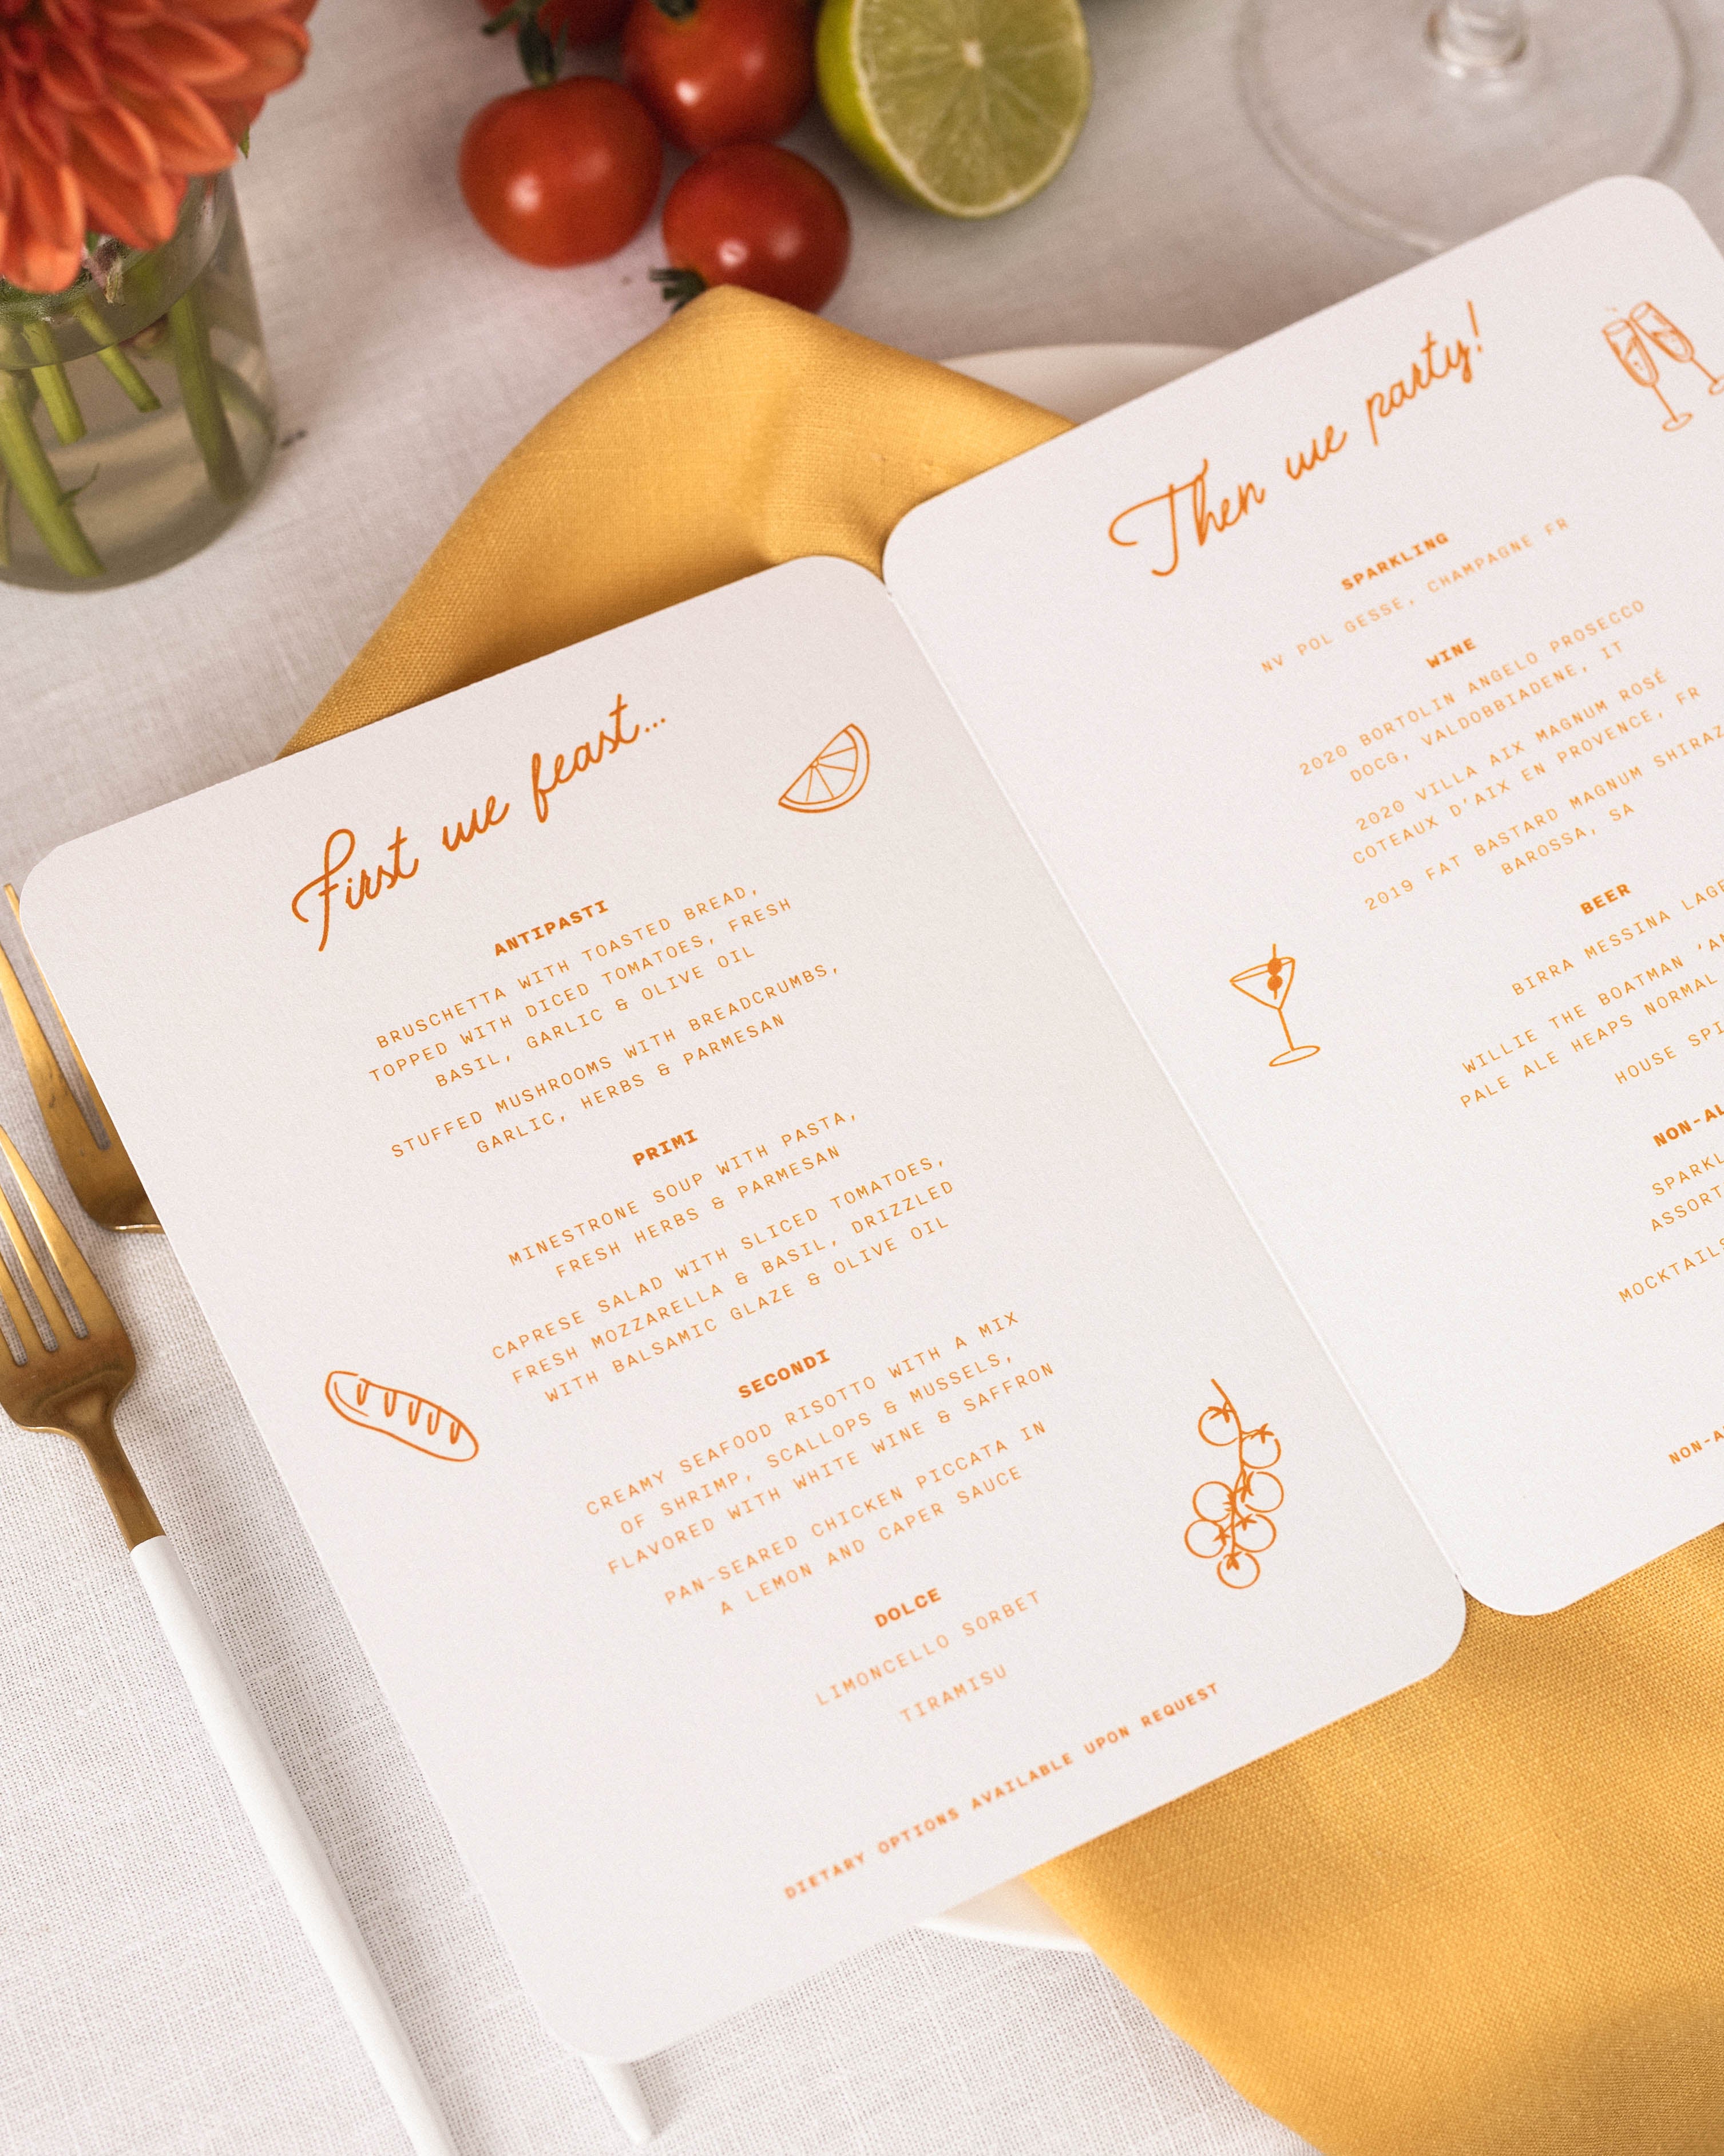 First we feast...
ANTIPASTI
BRUSCHETTA WITH TOASTED BREAD,
TOPPED WITH DICED TOMATOES, FRESH
BASIL, GARLIC & OLIVE OIL
STUFFED MUSHROOMS WITH BREADCRUMBS,
GARLIC, HERBS & PARMESAN
PRIMI
MINESTRONE SOUP WITH PASTA,
FRESH HERBS & PARMESAN
CAPRESE SALAD WITH SLICED TOMATOES,
FRESH MOZZARELLA & BASIL, DRIZZLED
WITH BALSAMIC GLAZE & OLIVE OIL
SECONDI
CREAMY SEAFOOD RISOTTO WITH A MIX
OF SHRIMP, SCALLOPS & MUSSELS,
FLAVORED WITH WHITE WINE & SAFFRON
PAN-SEARED CHICKEN PICCATA IN
A LEMON AND CAPER SAUCE
DOLCE
LIMONCELLO SORBET
TIRAMISU
DIETARY OPTIONS AVAILABLE UPON REQUEST
Then we party!
SPARKLING
NV POL GESSE, CHAMPAGNE FR
WINE
2020 BORTOLIN ANGELO PROSECCO
DOCG, VALDOBBIADENE, IT
2020 VILLA AIX MAGNUM ROSÉ
COTEAUX D'AIX EN PROVENCE, FR
2019 FAT BASTARD MAGNUM SHIRAZ
BAROSSA, SA
BEER
BIRRA MESSINA
WILLIE THE BOATMAN
PALE ALE HEAPS NORMAL
HOUSE
MOCKTAILS